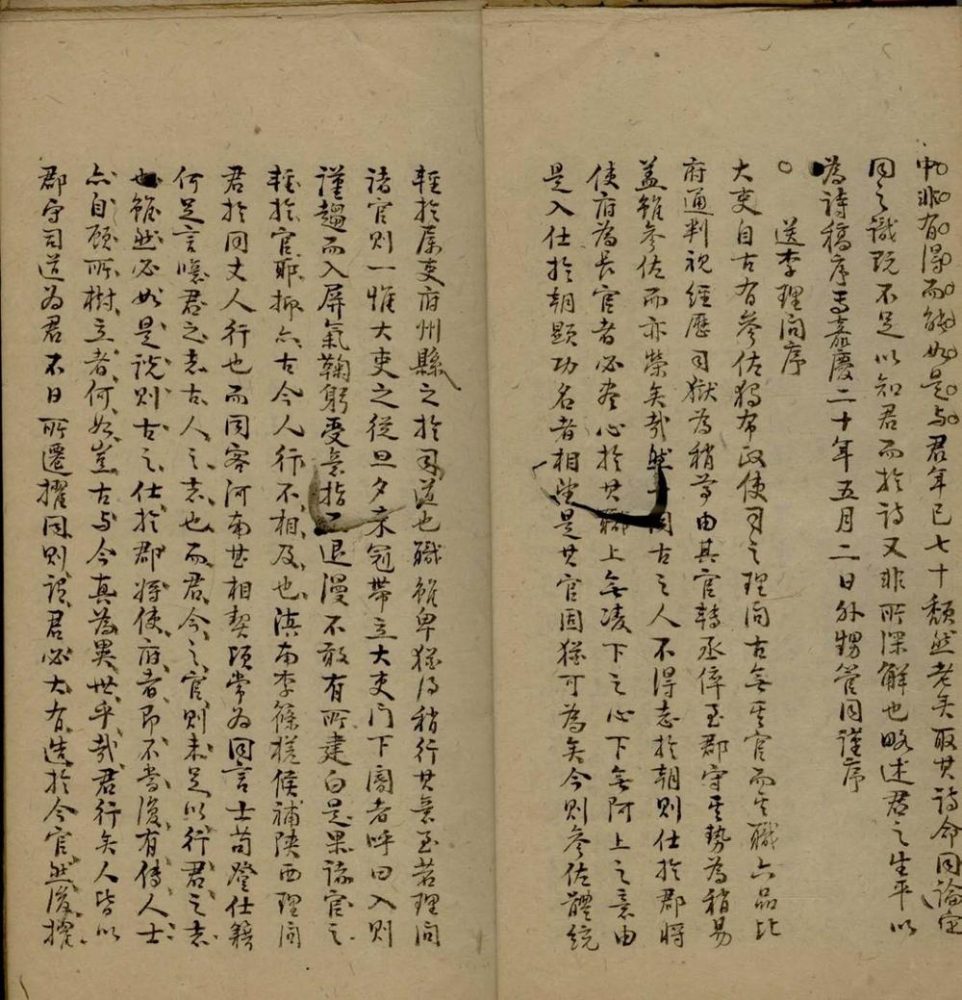 中非有得而能如是与君年已七十頽然老矣取其詩命同論定
同之識既不足以知君而於詩又非所深解也略述君之生平以
為詩稿序嘉慶二十年五月二日外甥管同謹序
送李理問序
大吏自古有參佐獨布政使司之理問古無其官而其職六品比
府通判視經歷司獄為稍尊由其官轉丞倅至郡守其勢為稍易
蓋雖參佐而亦榮矣哉然同古之人不得志於朝則仕於郡將
使府為長官者必盡心於其職上無凌下之心下無阿上之意由
是入仕於朝顕功名者相望是其官固猶可為矣今則參佐體統
輕於屬吏府州縣之於司道也職雖卑猶得稍行其意至若理問
諸官則一惟大吏之從旦夕衣冠帶立大吏門下閽者呼曰入則
謹趨而入屏氣鞠躬受意指而退漫不敢有所建白是果諸官之
輕於官耶抑亦古今人行不相及也滇南李篠槎候補陝西理問
君於同丈人行也而同客河南甚相契頃常為同言士苟登仕籍
何足言噫君之志古人之志也而君今之官則未足以行君之志
也雖然必如是說則古之仕於郡將使府者即不當復有傳人士
亦自顧所樹立者何如豈古与今真為異世乎哉君行矣人皆以
郡守司道為君不日所遷擢同則謂君必大有造於今官然後擢